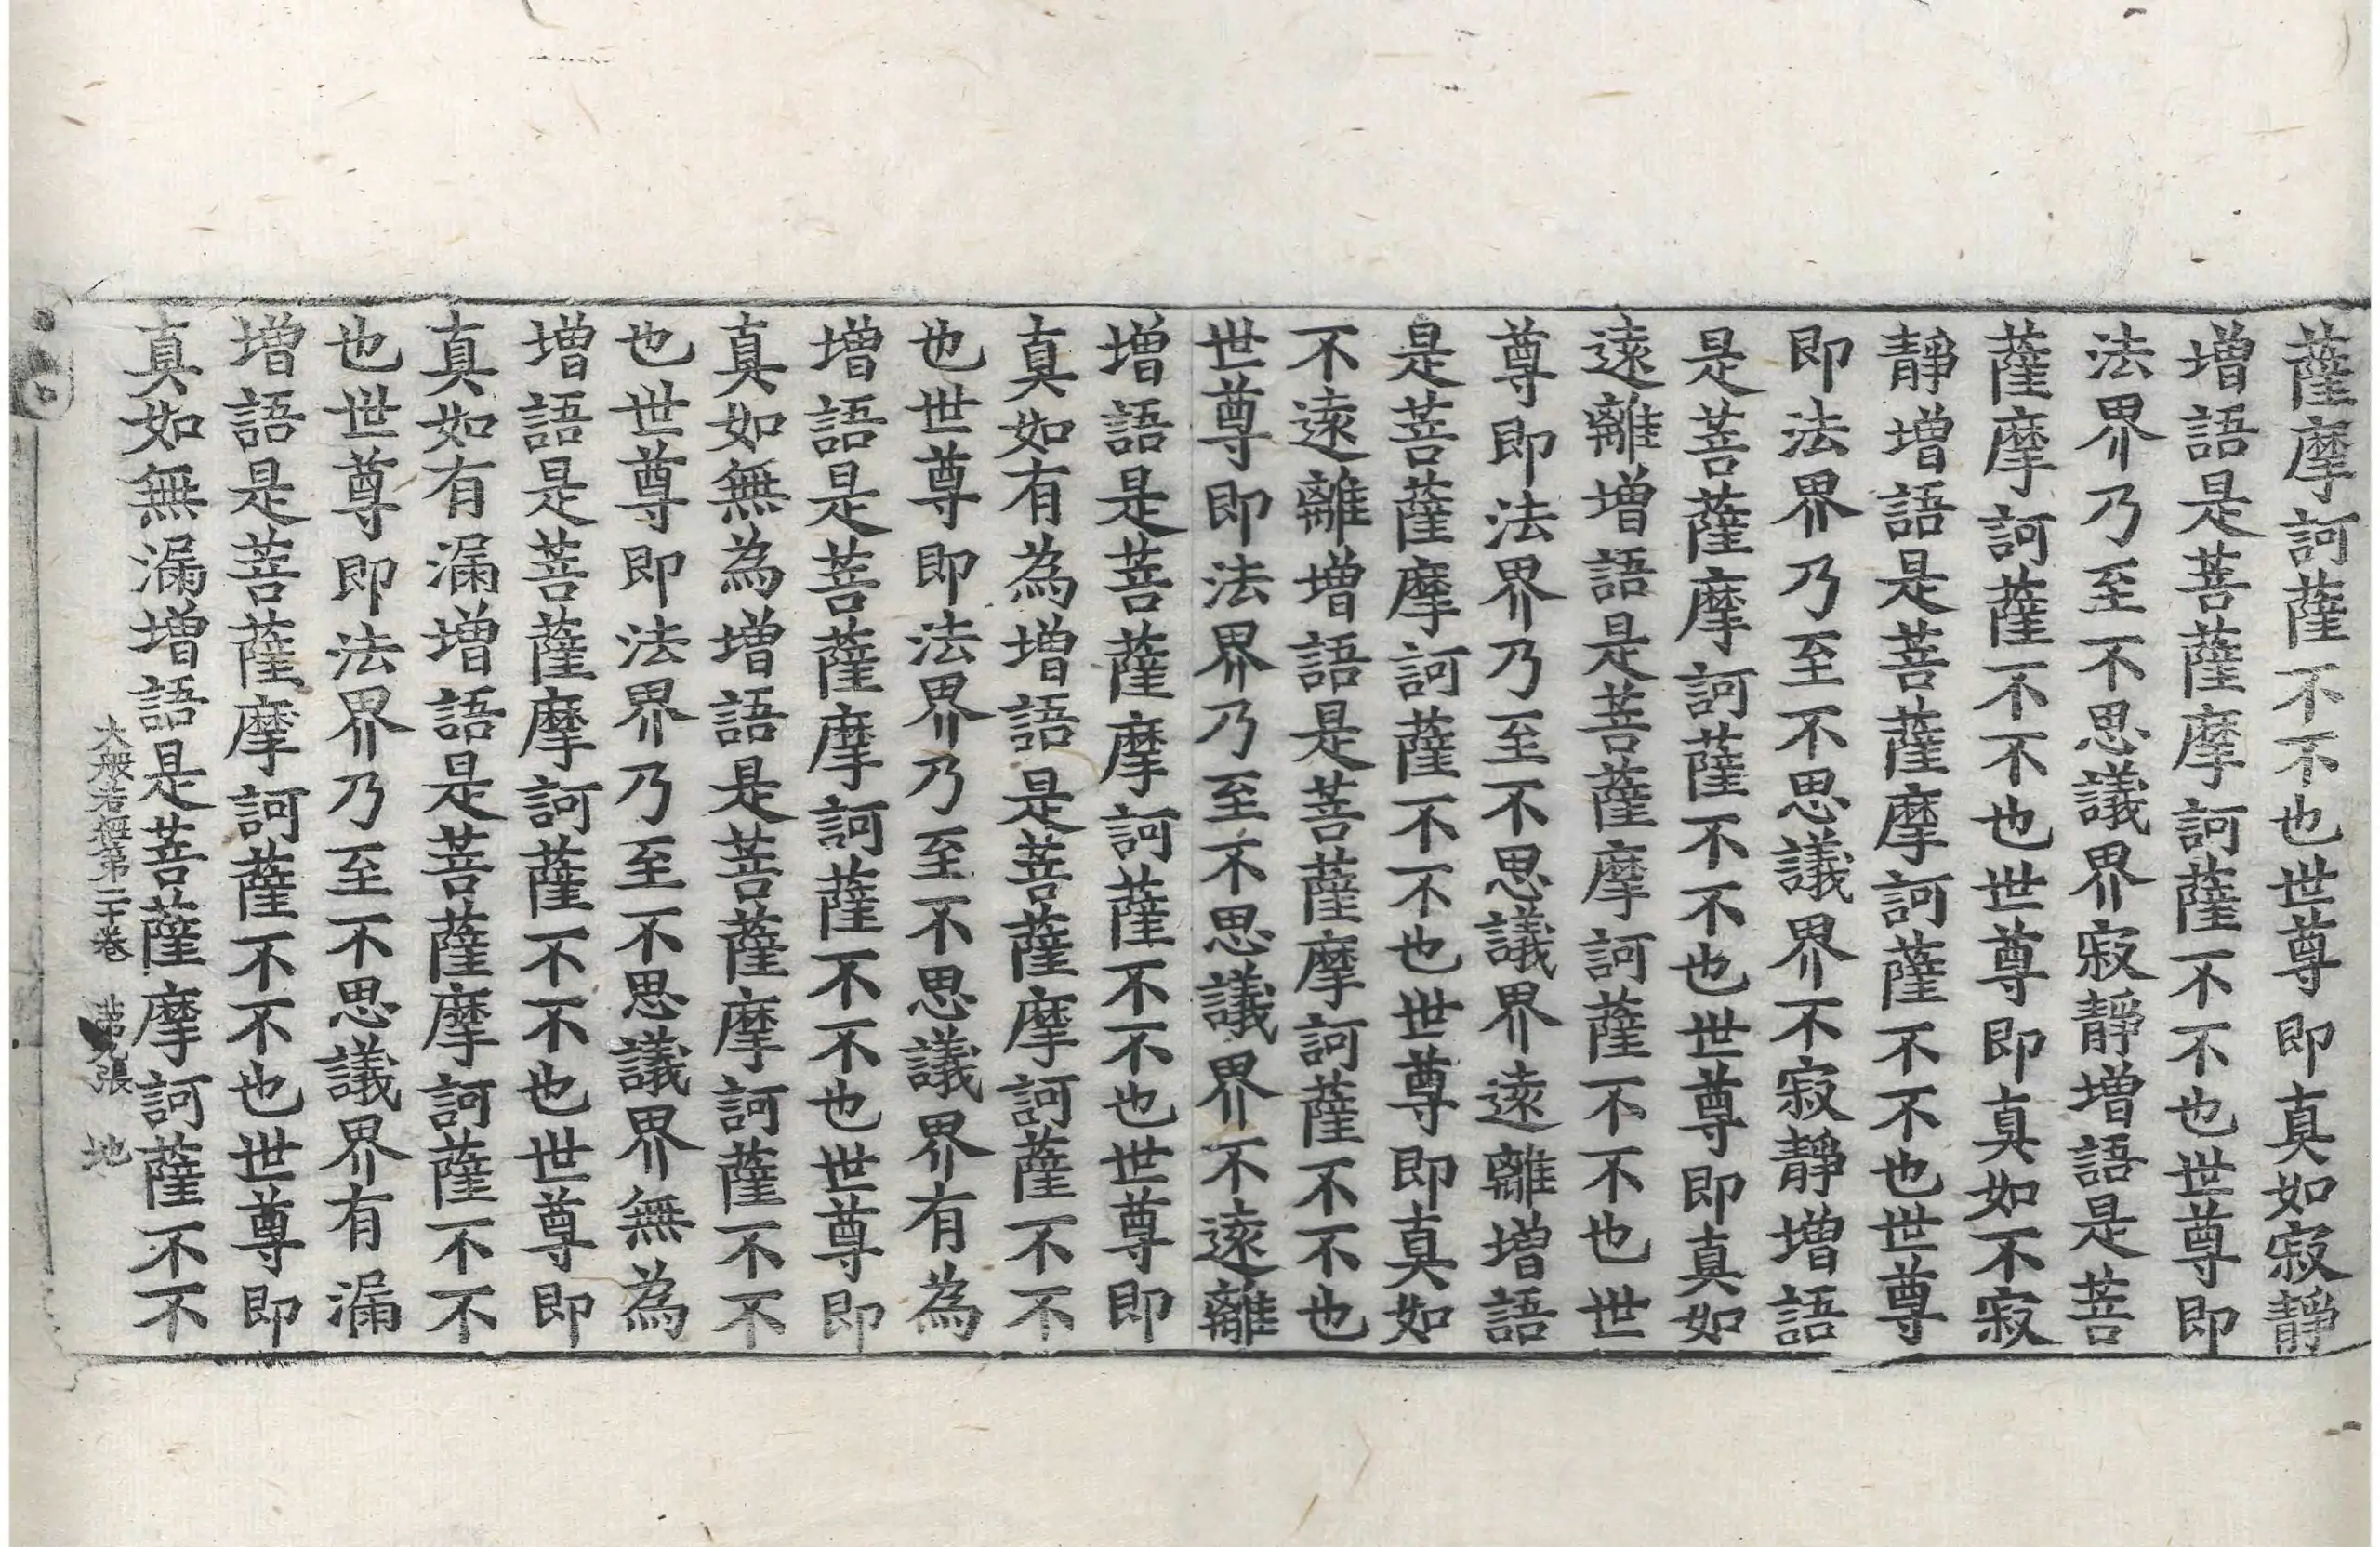 薩摩訶薩不不也世尊即真如寂靜
增語是菩薩摩訶薩不不也世尊即
法界乃至不思議界寂靜增語是菩
薩摩訶薩不不也世尊即真如不寂
靜增語是菩薩摩訶薩不不也世尊
即法界乃至不思議界不寂靜增語
是菩薩摩訶薩不不也世尊即真如
遠離增語是菩薩摩訶薩不不也世
尊即法界乃至不思議界遠離增語
是菩薩摩訶薩不不也世尊即真如
不遠離增語是菩薩摩訶薩不不也
世尊即法界乃至不思議界不遠離
增語是菩薩摩訶薩不不也世尊即
真如有為增語是菩薩摩訶薩不不
也世尊即法界乃至不思議界有為
增語是菩薩摩訶薩不不也世尊即
真如無為增語是菩薩摩訶薩不不
也世尊即法界乃至不思議界無為
增語是菩薩摩訶薩不不也世尊即
真如有漏增語是菩薩摩訶薩不不
也世尊即法界乃至不思議界有漏
增語是菩薩摩訶薩不不也世尊即
真如無漏增語是菩薩摩訶薩不不
大般若經第二十卷 第九張 地